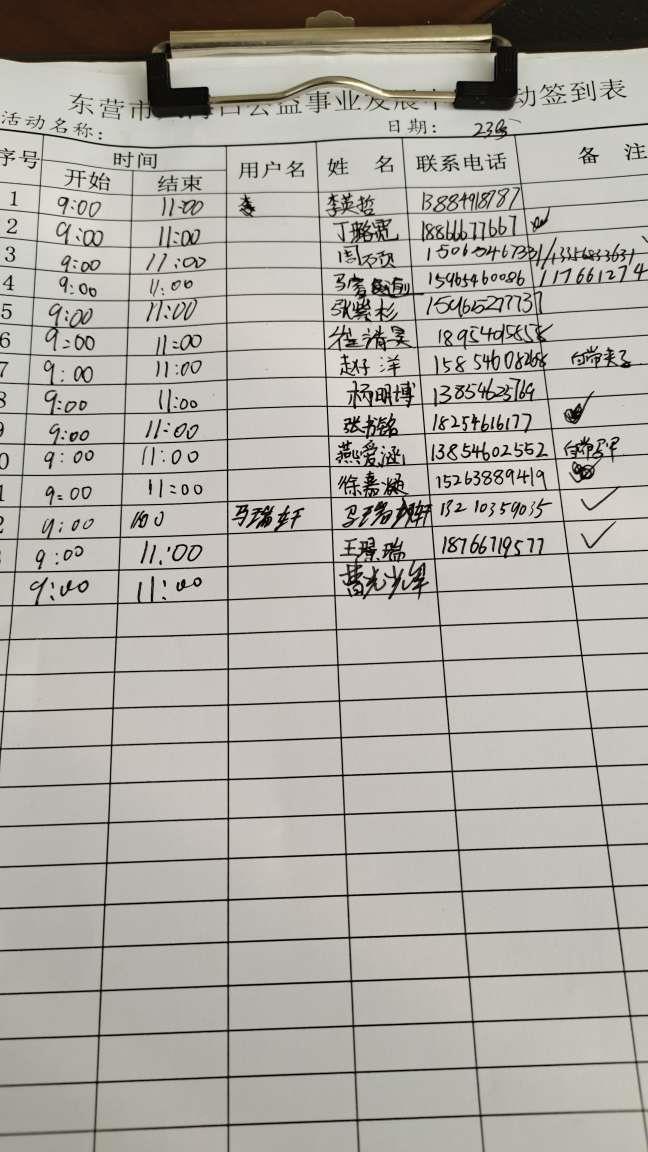 东营市 口公益事业发展中 动签到表
活动名称: 日期: 23号
序号 时间 用户名 姓 名 联系电话 备 注
开始 结束
1 9:00 11:00 李英哲 13884918787
2 9:00 11:00 丁璐宽 18866677667
3 9:00 11:00 13356833631
4 9:00 11:00 15965460086 117661274
5 9:00 11:00 张紫杉
6 9:00 11:00 崔清昊 18954015858
7 9:00 11:00 赵仔洋
8 9:00 11:00 杨明博 13854625769
9 9:00 11:00 张书铭 18254616177 ✓
0 9:00 11:00 燕爱涵 13854602552
1 9:00 11:00 徐嘉凝 15263889419
2 9:00 马瑞轩 马瑞轩 13210359035 ✓
9:00 11:00 王璟瑞 18766719577 ✓
9:00 11:00